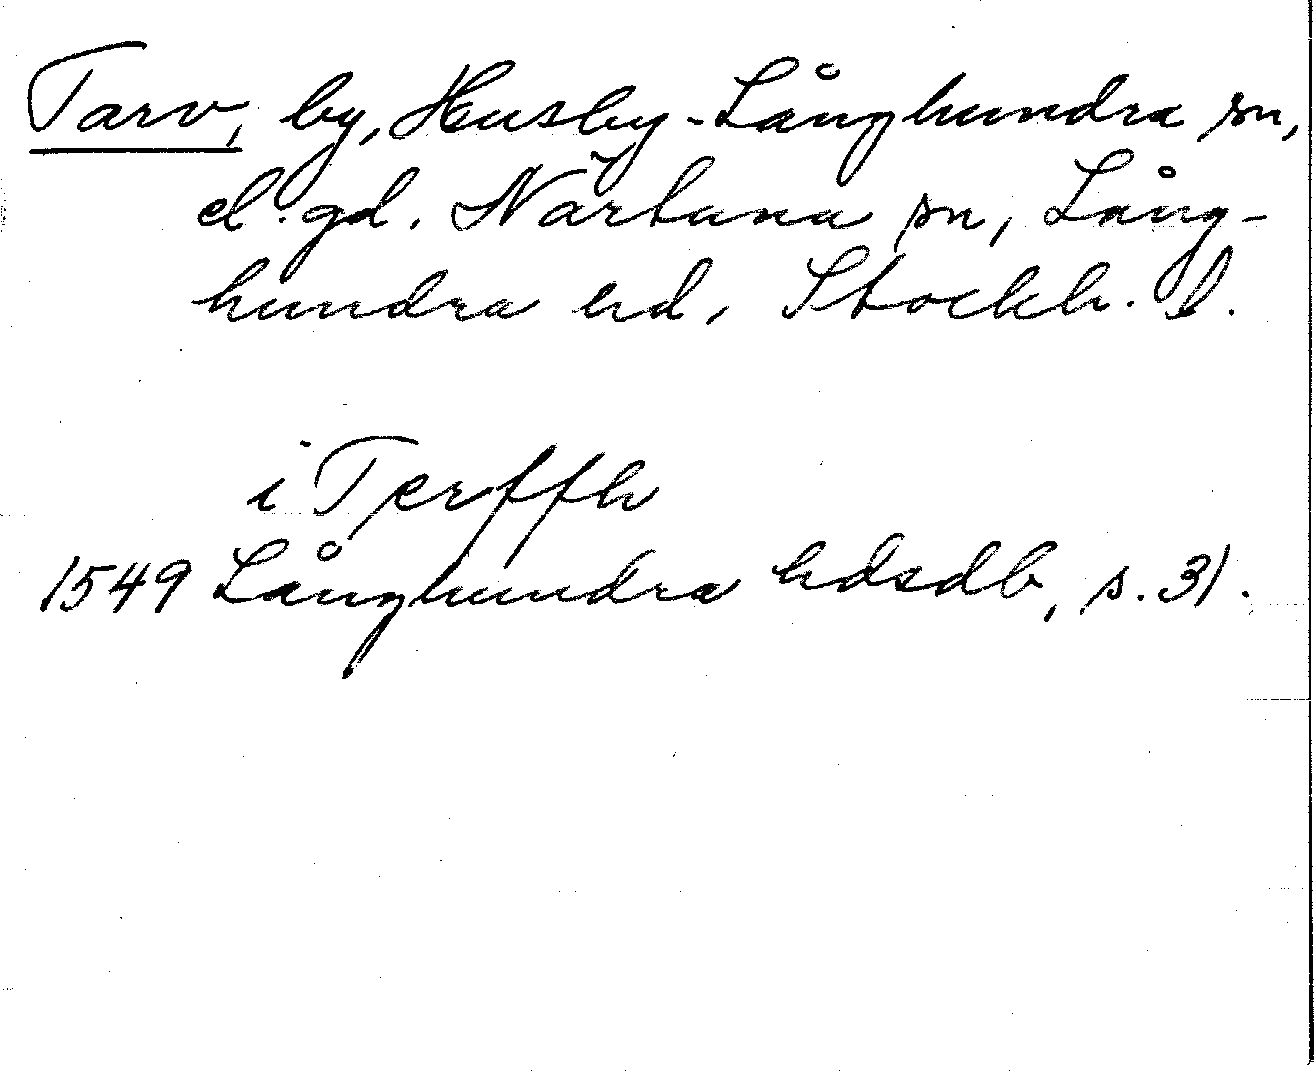 Tarv, by, Husby-Långhundra sn,
el. gd. Närtuna sn, Lång-
hundra hd, Stockh. l.
i Tjerffh
1549 Långhundra hdsdb, s. 31.